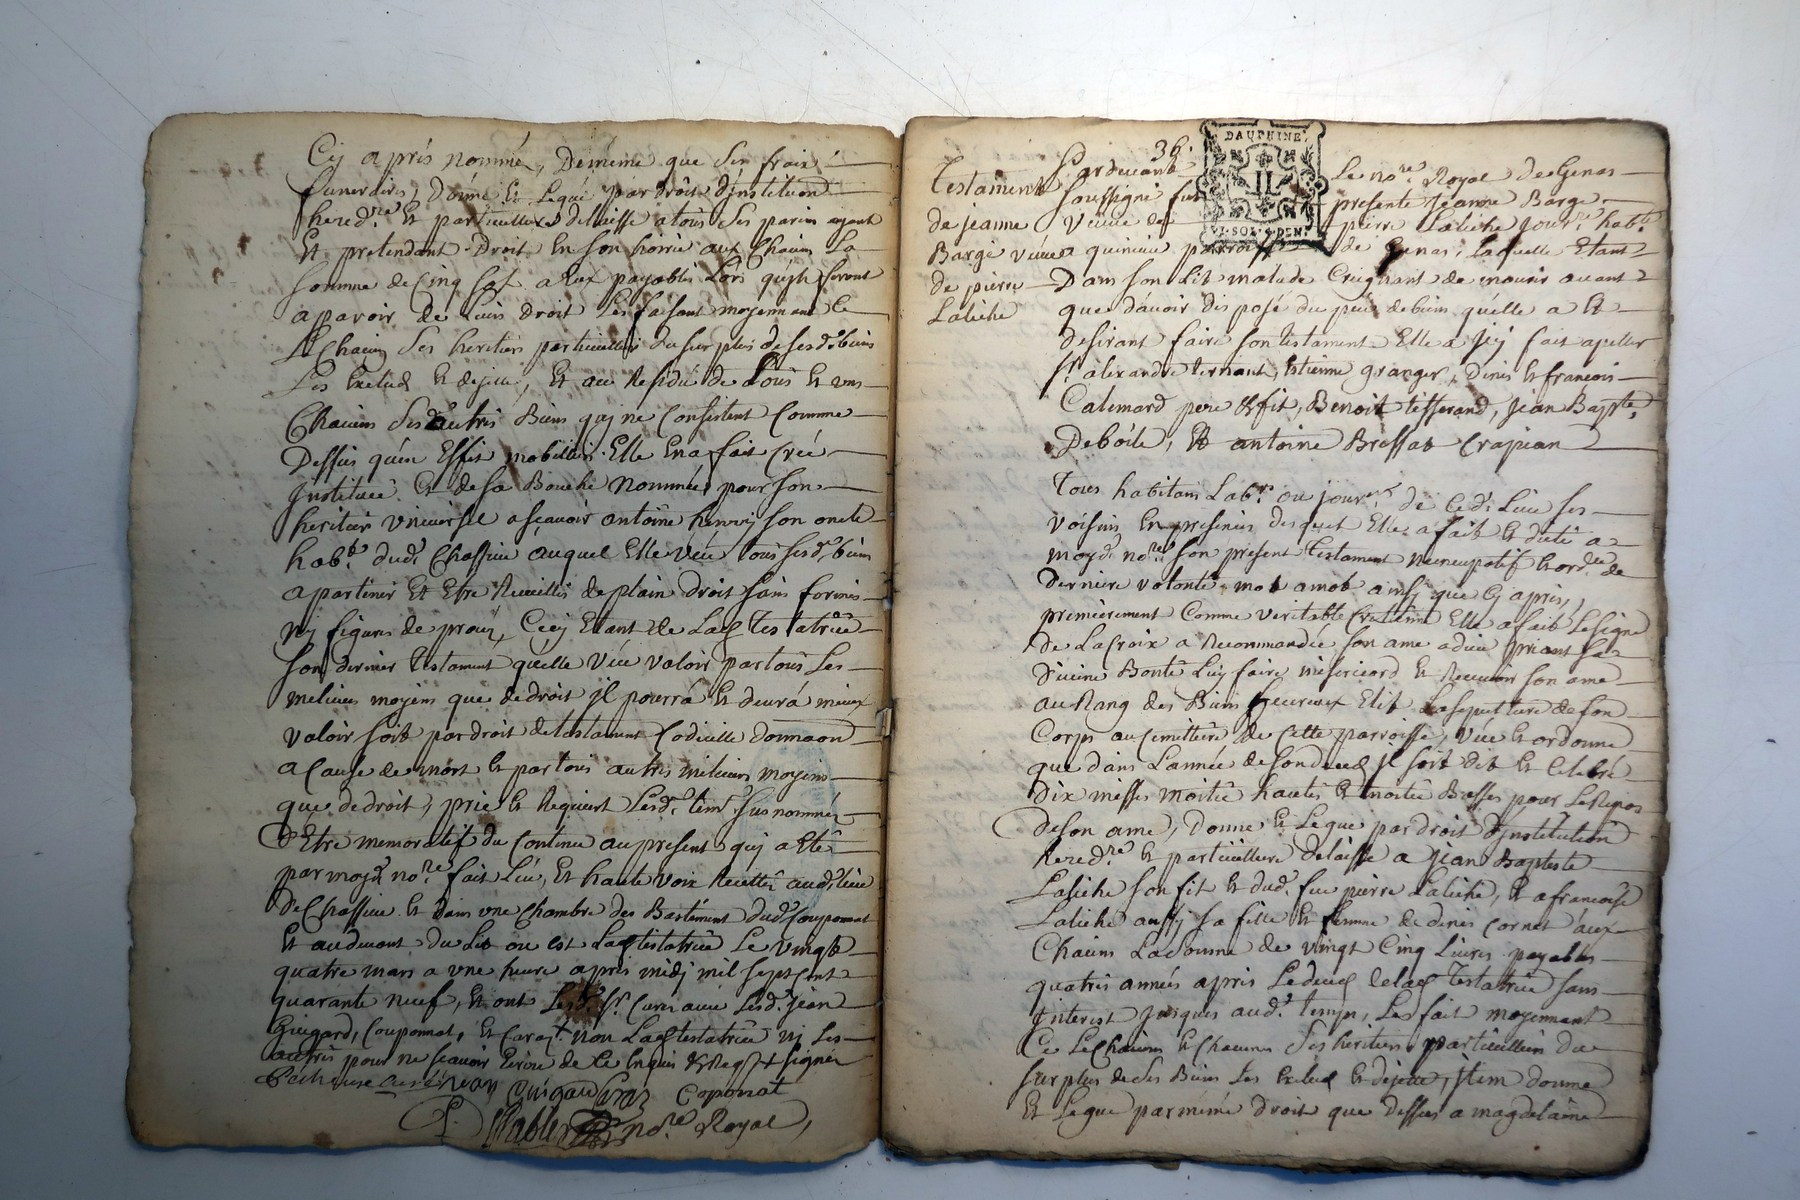 Cy après nommé, Demême que ses fraix
funeraires, Donne Et Legue par droit d'jnstitution
hered.re Et particulliere delaisse a tous ses parens ayant
Et pretendant Droit En son hoirie aux Chacun La
somme de Cinq sols a Eux payables Lors qu'jls feront
aparoir de Leurs droit Les faisant moyennant Ce
Chacun Ses heritiers particulliers du surplus de ses d. biens
Les Exclud Et dejette, Et au Residu de tous Et uns
Chacuns Sesd. autres Biens qui ne Consistent Comme
Dessus qu'en Effets mobiliers Elle En a fait Créé
jnstitué Et de sa Bouche Nommé pour son
heritier vniversel asçavoir antoine henrij son oncle
hab.t dud. Chassieu auquel Elle veut tous sesd. biens
apartenir Et Etre Recuillis de plain droit sans formes
nij figures de procès, Cecij Etant de Lad. testatrice
son dernier testament quelle veut valoir par tous Les
melieurs moyens que de droit jl pourrá Et devrá mieux
valoir soit par droit de testament Codicille donnaon
a Cause de mort Et par tous autres melieurs moyens
que de droit, prie Et Requiert Lesd. tem. susnommés
d'Etre memoratif du Contenu au present qui a Eté
par moyd. no.re fait Leu, Et haute voix Recitté aud. Lieu
de Chassieu Et dans vne Chambre des Bastiment dud. Couponnat
Et audevant du Lit ou est Lad. testatrice Le vingt
quatre mars a vne heure après midj mil sept cent
quarante neuf, Et ont Lesd. S.r Curé avec Lesd. jean
Guigard, Couponnat, Et non Lad. testatrice nj Les
autres pour ne sçavoir Ecrire de Ce Enquis & Req. signés
curé guigard Coponat
no.re Royal,
36.
Testament
de jeanne
Barge veuve
de pierre
Laliche
DAUPHINE
VI. SOLS. 4 DEN.
Pardevant Le no.re Royal de Genas
soussigné fut presente jeanne Barge
veuve de pierre Laliche jour.r hab.t
parroisse de Genas, Laquelle Etant
Dans son Lit malade Creignant de mourir avant
que d'avoir disposé du peu de biens qu'elle a Et
desirant faire son testament Elle a jcij fait apeller
S.r alexandre ternant, Estienne granger, denis Et francois
Calemard pere & fils, Benoit tisserand, jean Bapte.
Deboile, Et antoine Bressat
Tous habitans Lab.rs ou jour.ers de Ced. Lieu ses
voisins En presences desquels Elle a fait Et dicté a
moyd. no.re son present testament nuncupatif Et ord.ce de
derniere volonté mot a mot ainsj que Cy après,
premierement Comme veritable Cretienne Elle a fait Le signe
de La Croix a Recommandée son ame a dieu priant sa
divine Bonté Luy faire misericord Et Recevoir son ame
au Rang des Biens heureux Elit La sepulture de son
Corps au Cemittiere de Cette parroisse, veut Et ordonne
que dans L'année de son deceds jl soit dit Et Celebré
dix messes moitié hautes Et moitié Basses pour Le Repos
de son ame, donne Et Legue par droit d'jnstitution
hered.re Et particulliere delaisse a jean Baptiste
Laliche son fils Et dud. feu pierre Laliche, Et a francoise
Laliche aussj sa fille Et femme de denis Cornet aux
Chacuns La somme de vingt Cinq Livres payables
quatres années après Le deces de lad. testatrice sans
jnterest jusques aud. temps, Les fait moyennant
Ce Le Chacuns Et Chacunes Ses heritiers particulliers du
surplus de Ses Biens Les Exclud Et dejette, jtem donne
Et Legue par même droit que dessus a magdelaine